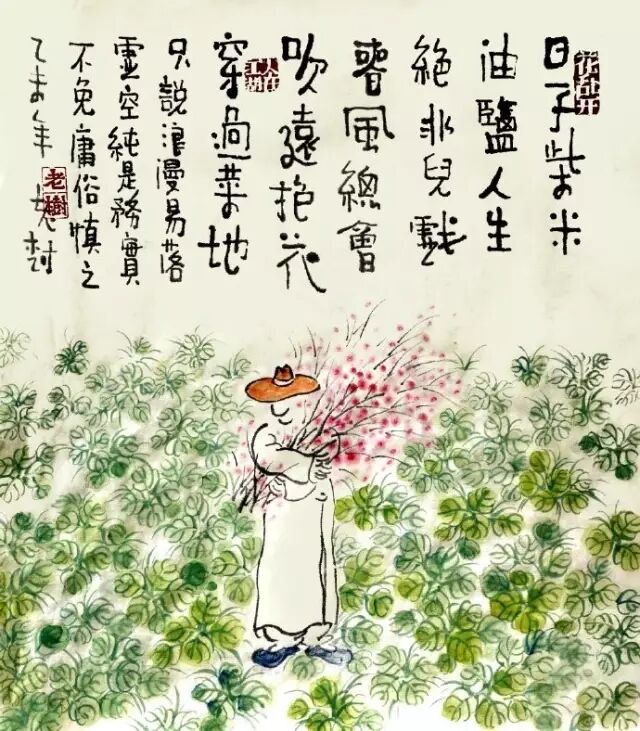 花乱开
日子柴米
油鹽人生
絶非兒戲
春風總會
吹遠抱花
人在江湖
穿過菜地
只説浪漫易落
靈空純是務實
不免庸俗慎之
乙未年老树
老樹